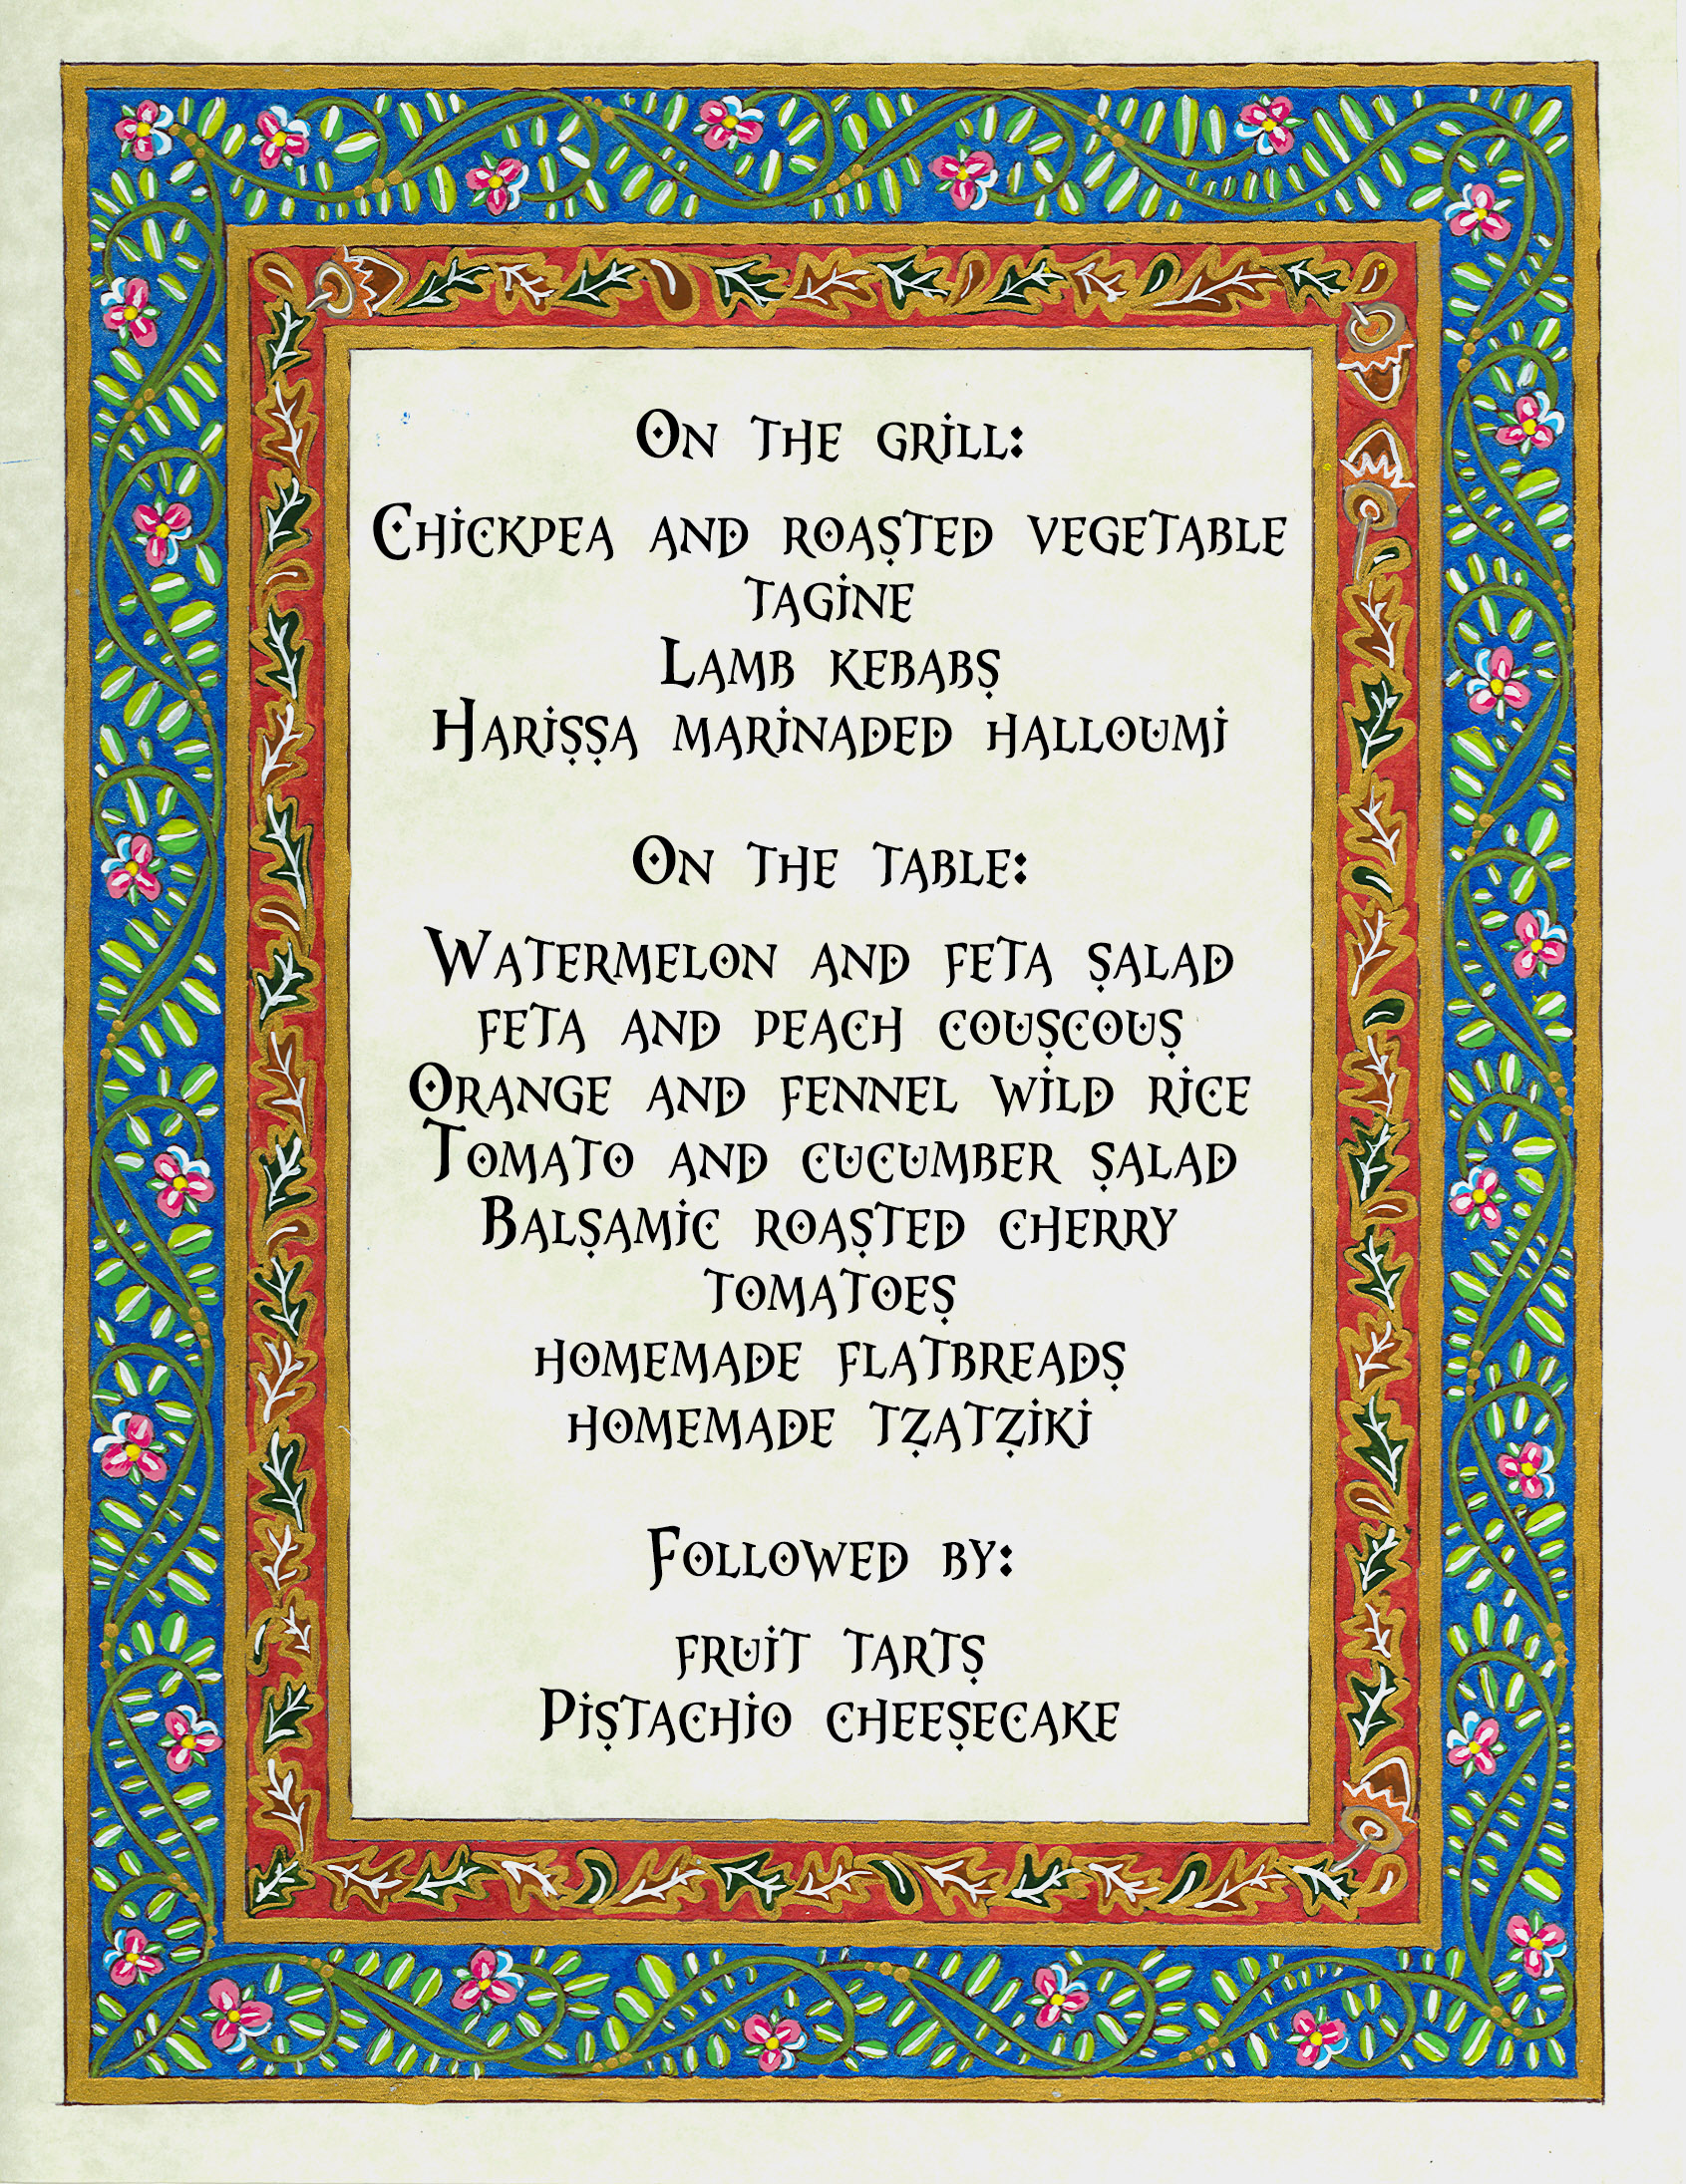 On the grill:
Chickpea and roasted vegetable
tagine
Lamb kebabs
Harissa marinaded halloumi
On the table:
Watermelon and feta salad
feta and peach couscous
Orange and fennel wild rice
Tomato and cucumber salad
Balsamic roasted cherry
tomatoes
homemade flatbreads
homemade tzatziki
Followed by:
fruit tarts
Pistachio cheesecake